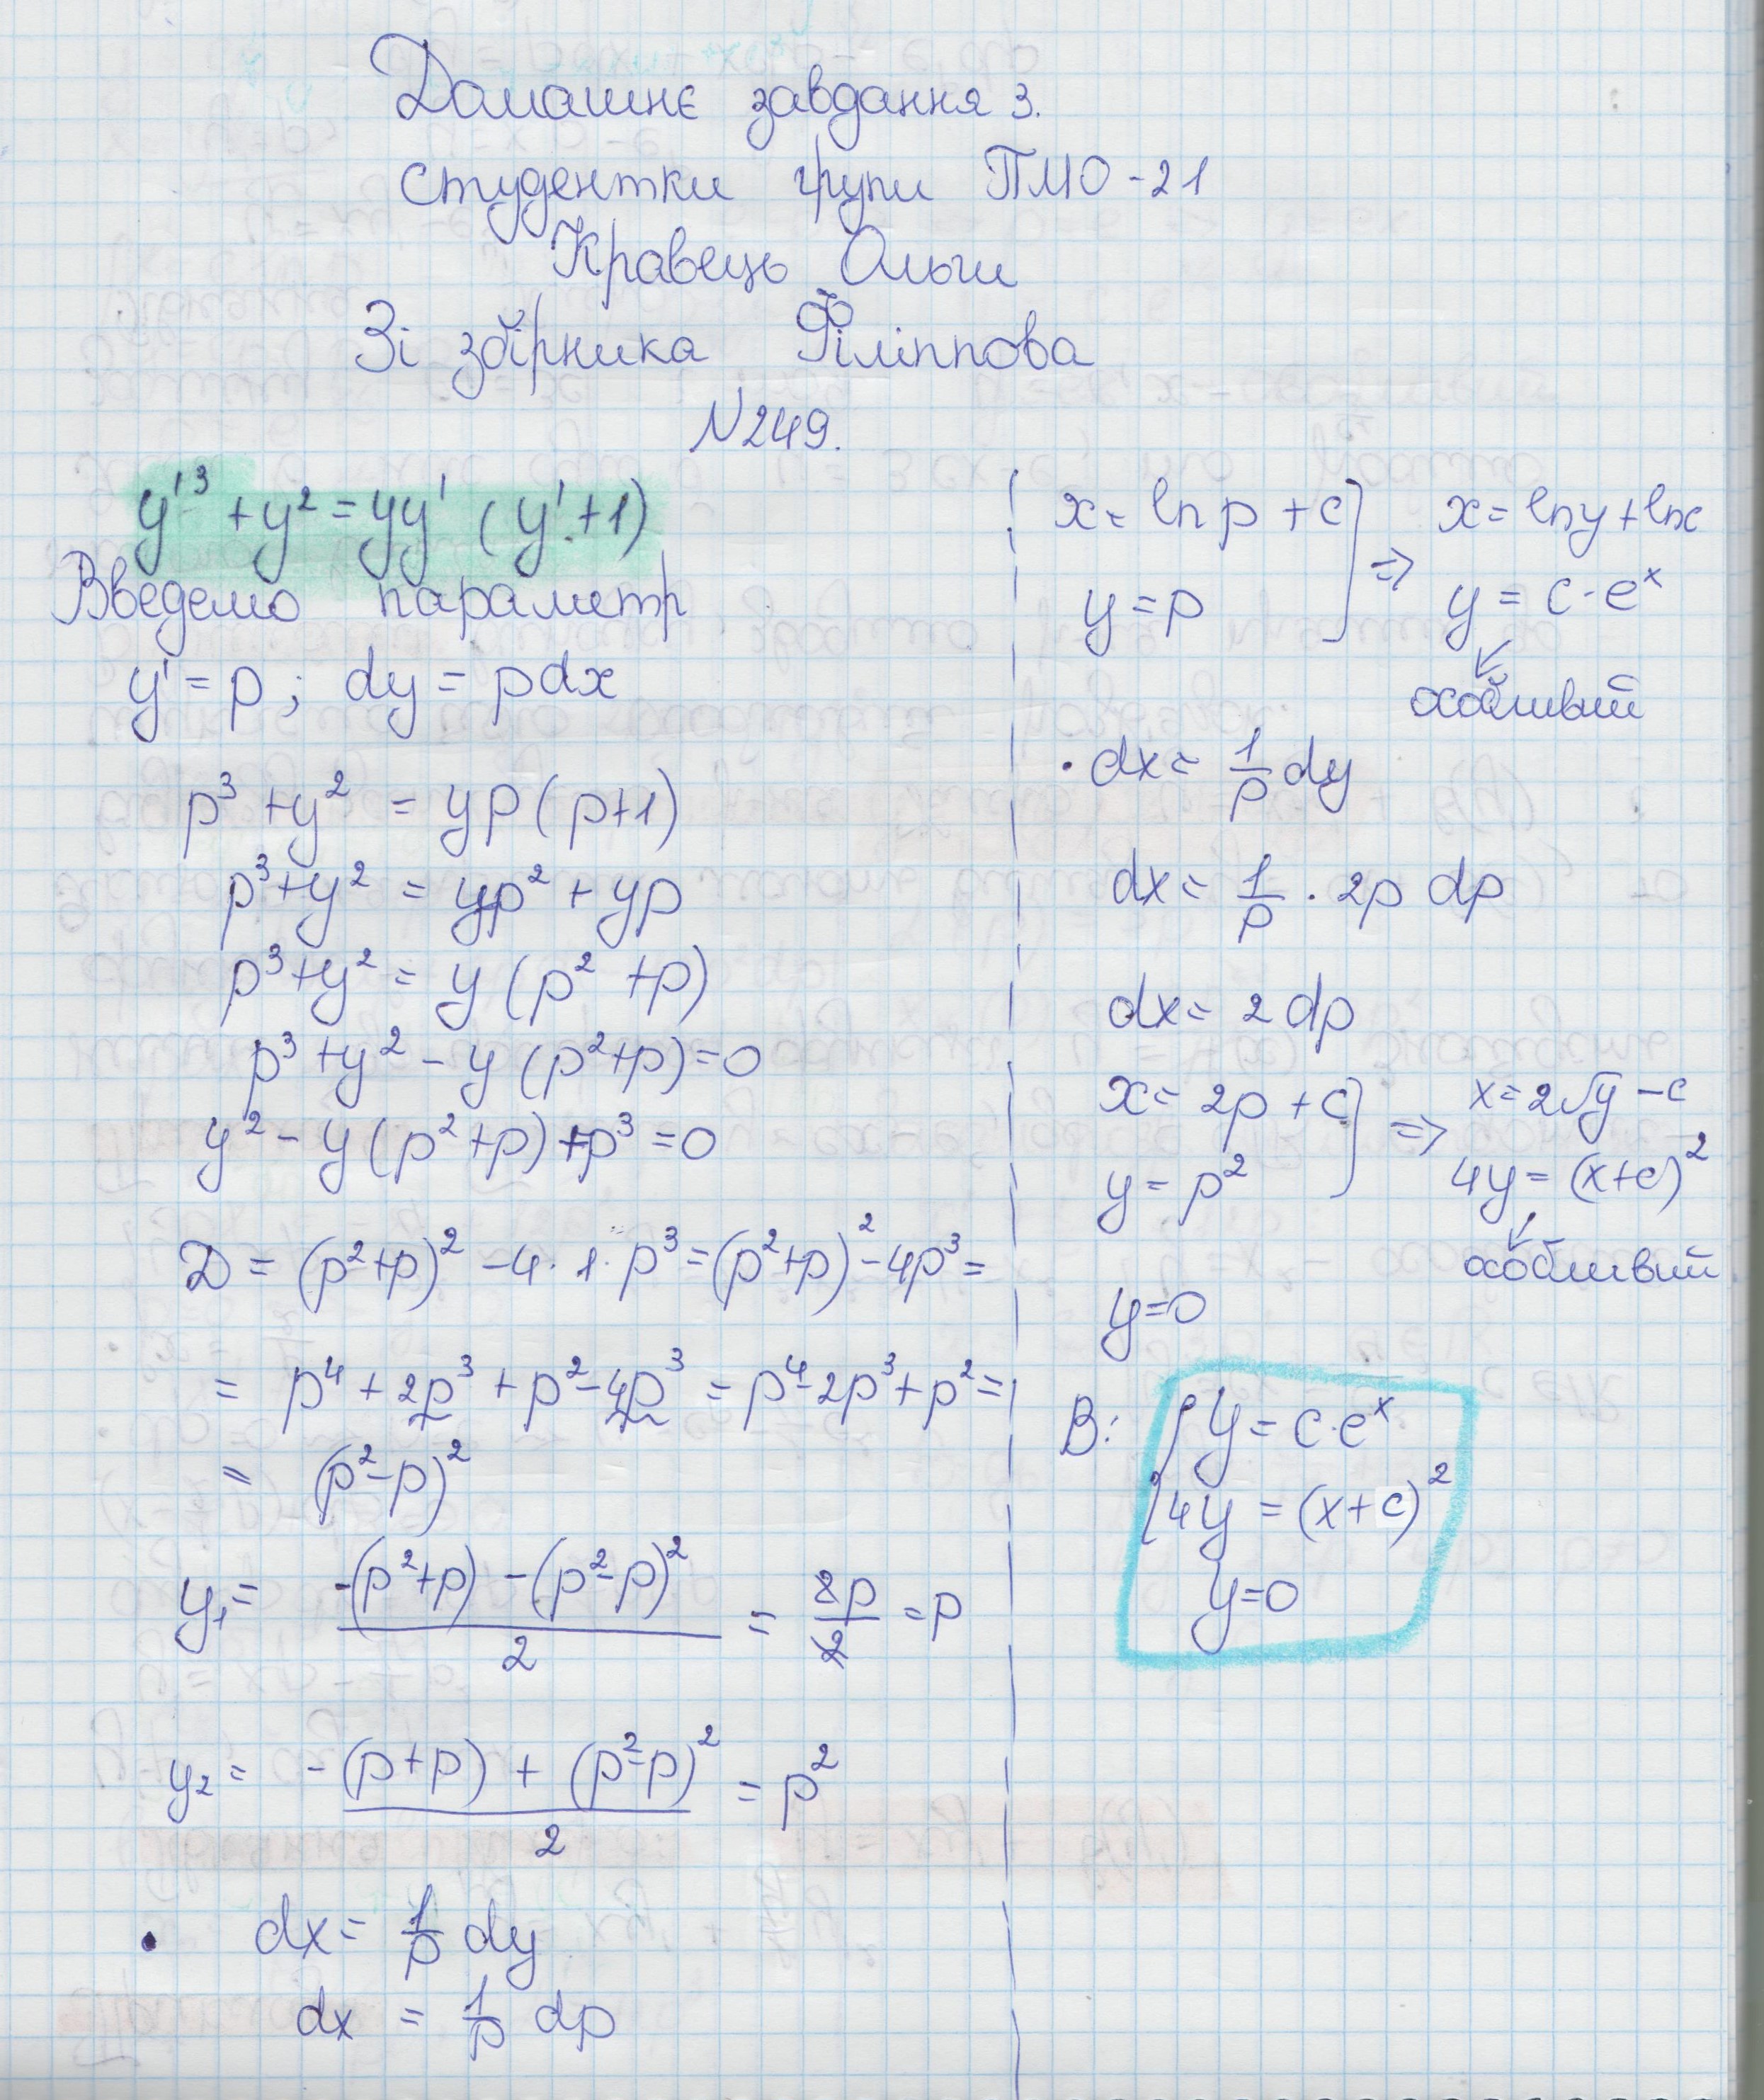 Домашнє завдання 3.
студентки групи ПМО-21
Кравець Ольги
Зі збірника Філіппова
N249.
y'³ + y² = yy' (y'+1)
Введемо параметр
y' = p; dy = pdx
p³ + y² = yp(p+1)
p³ + y² = yp² + yp
p³ + y² = y(p² + p)
p³ + y² - y(p²+p) = 0
y² - y(p²+p) + p³ = 0
D = (p²+p)² - 4·1·p³ = (p²+p)² - 4p³ =
= p⁴ + 2p³ + p² - 4p³ = p⁴ - 2p³ + p² =
= (p²-p)²
y₁ = (-(p²+p) - (p²-p)²)/2 = 2p/2 = p
y₂ = (-(p+p) + (p²-p)²)/2 = p²
• dx = 1/p dy
dx = 1/p dp
x = ln p + c] ⇒ x = lny + lnc
y = p y = c·eˣ
особливий
• dx = 1/p dy
dx = 1/p · 2p dp
dx = 2 dp
x = 2p + c] ⇒ x = 2√y - c
y = p² 4y = (x+c)²
особливий
y = 0
В: { y = c·eˣ
4y = (x+c)²
y = 0